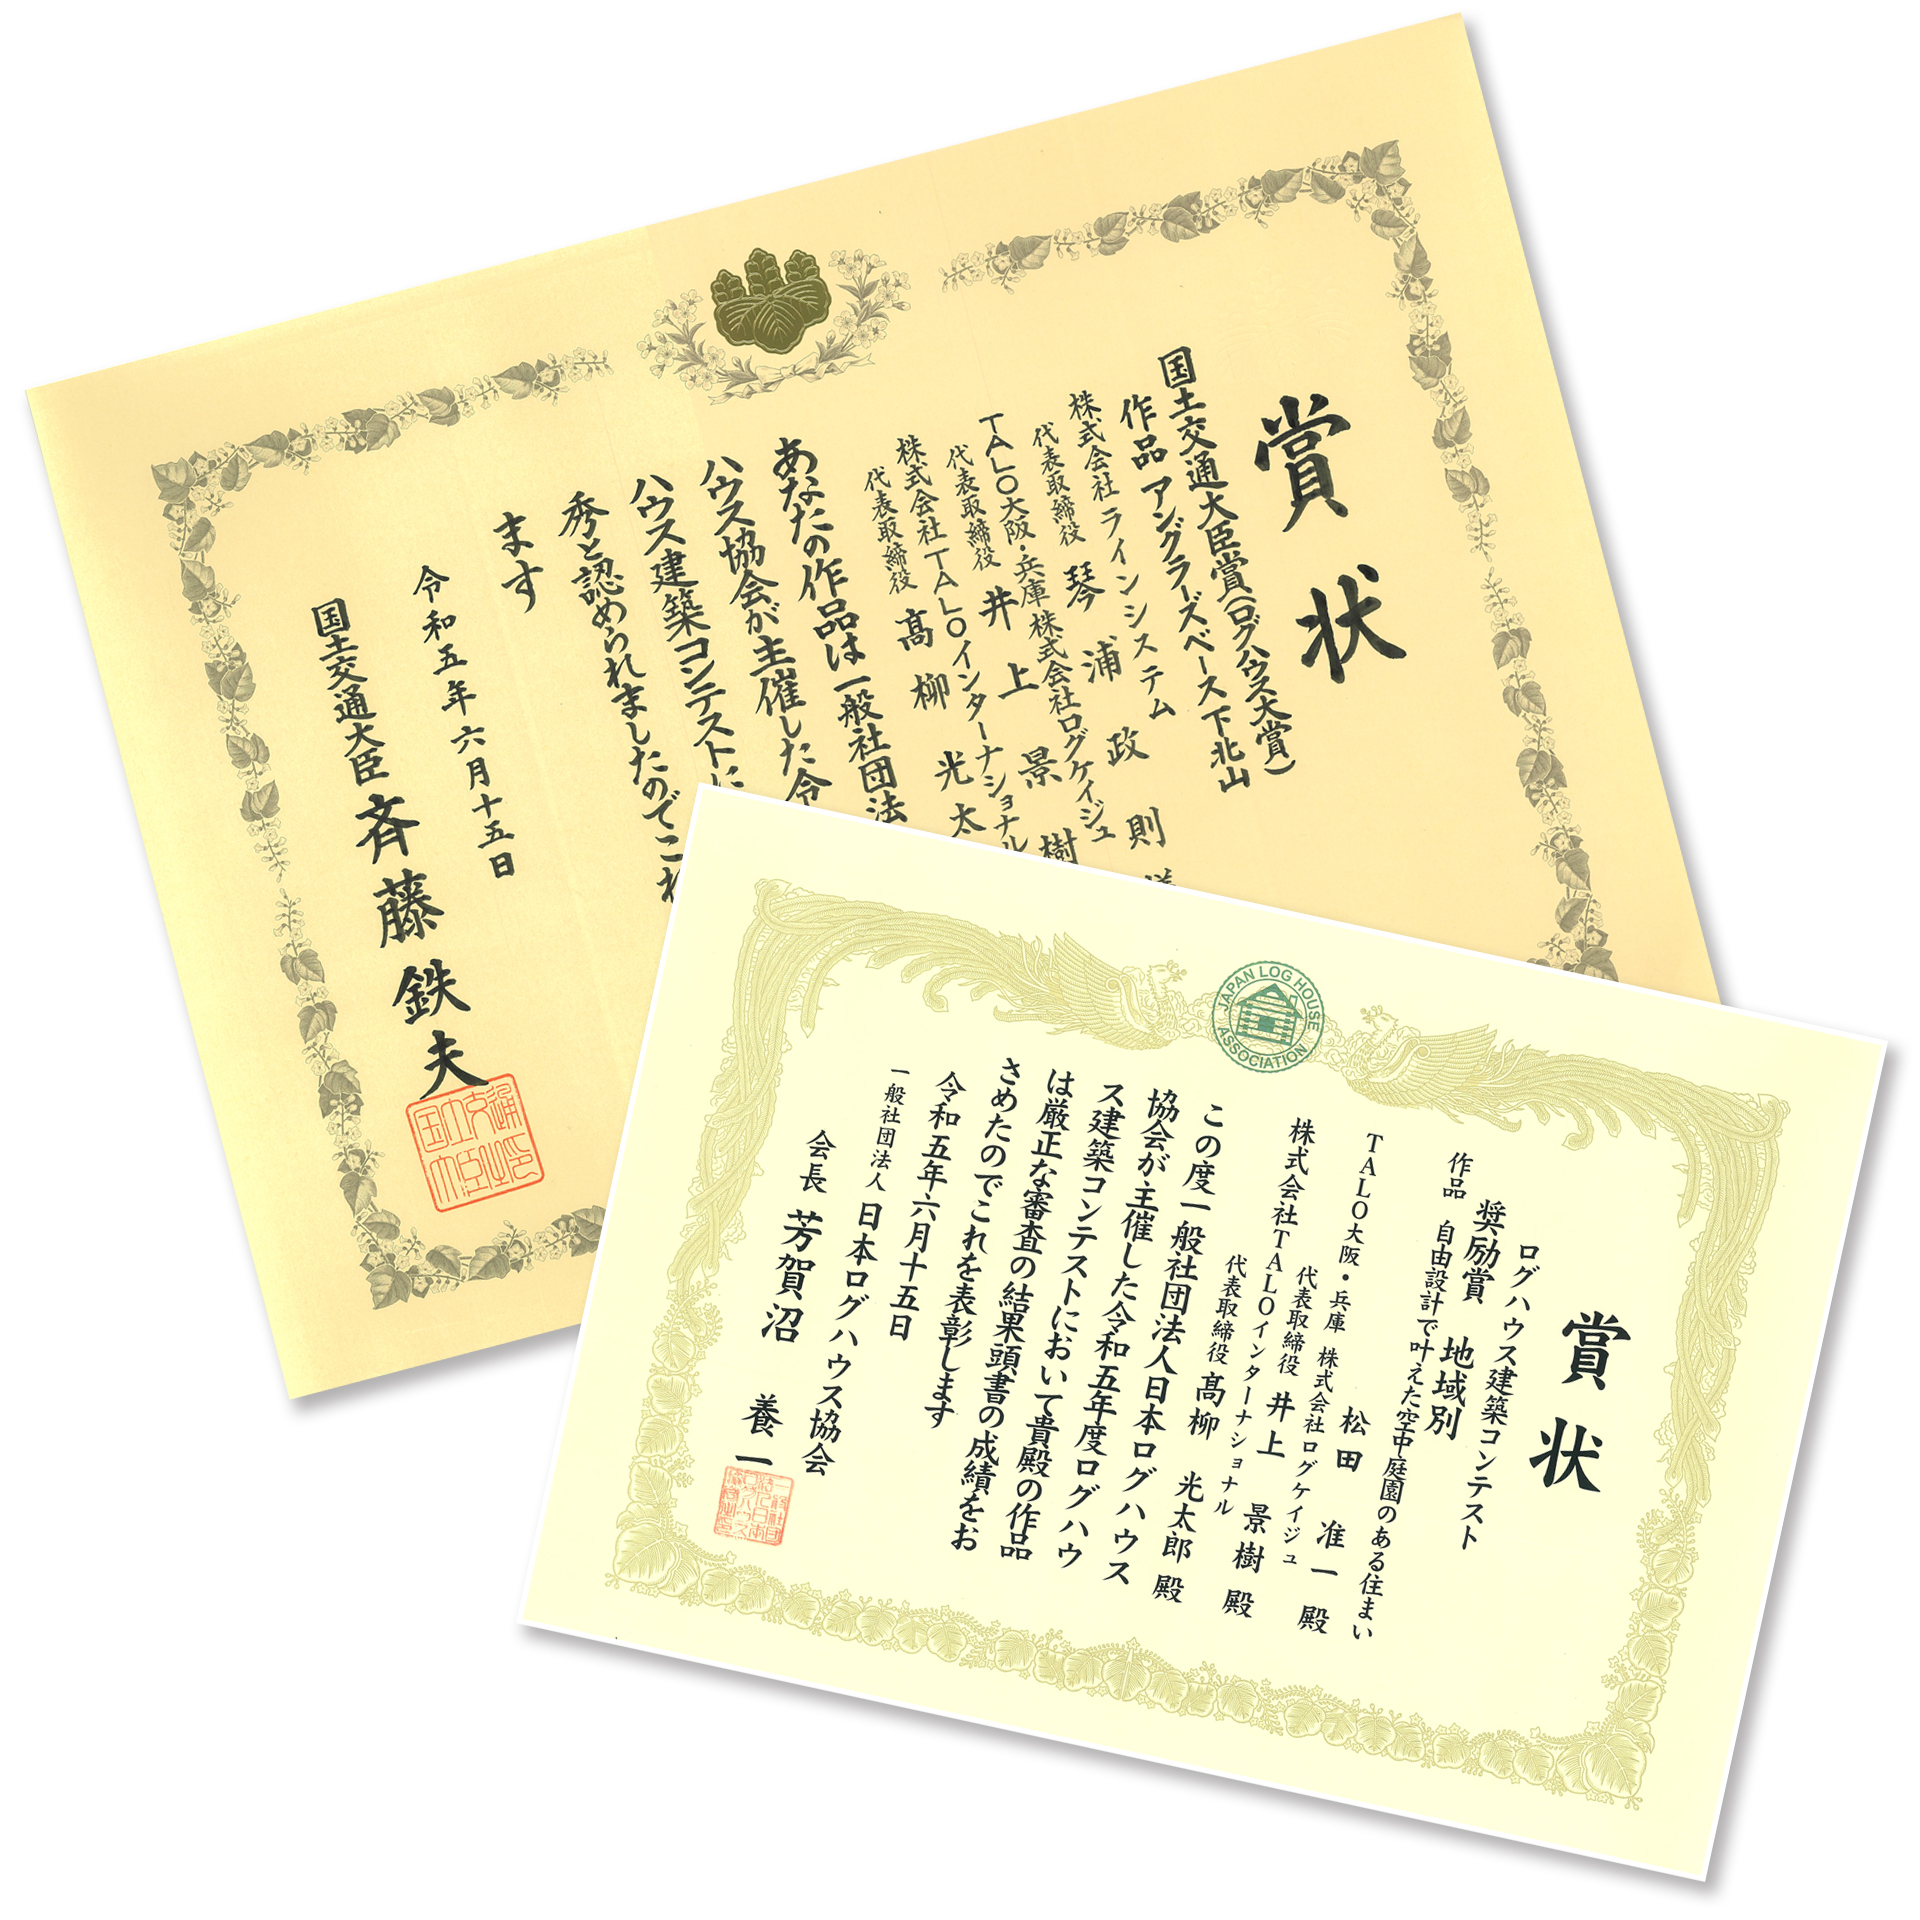 賞状
国土交通大臣賞(ログハウス大賞)
作品 アングラーズベース下北山
株式会社ラインシステム
代表取締役 琴浦 政則
TALO大阪・兵庫株式会社ログケイジュ
代表取締役 井上 景樹
株式会社TALOインターナショナル
代表取締役 髙柳 光太
あなたの作品は一般社団法
ハウス協会が主催した令
ハウス建築コンテストに
秀と認められましたのでこれ
ます
令和五年六月十五日
国土交通大臣 斉藤鉄夫
JAPAN LOG HOUSE ASSOCIATION
賞状
ログハウス建築コンテスト
奨励賞 地域別
作品 自由設計で叶えた空中庭園のある住まい
松田 准一 殿
TALO大阪・兵庫 株式会社ログケイジュ
代表取締役 井上 景樹 殿
株式会社TALOインターナショナル
代表取締役 髙柳 光太郎 殿
この度一般社団法人日本ログハウス
協会が主催した令和五年度ログハウ
ス建築コンテストにおいて貴殿の作品
は厳正な審査の結果頭書の成績をお
さめたのでこれを表彰します
令和五年六月十五日
一般社団法人 日本ログハウス協会
会長 芳賀沼 養一